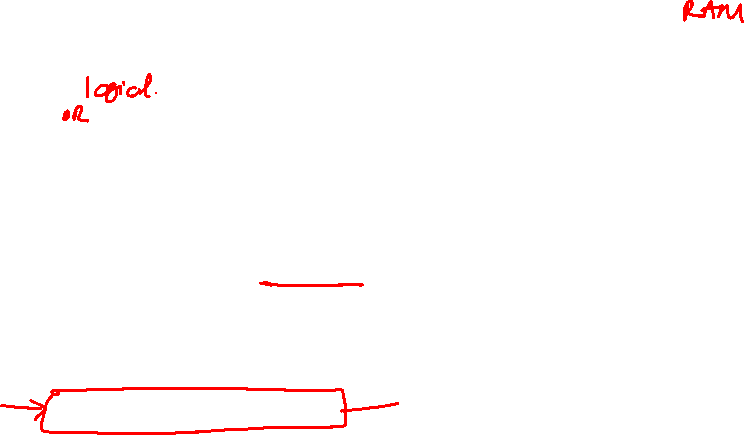 RAM
logical.
OR